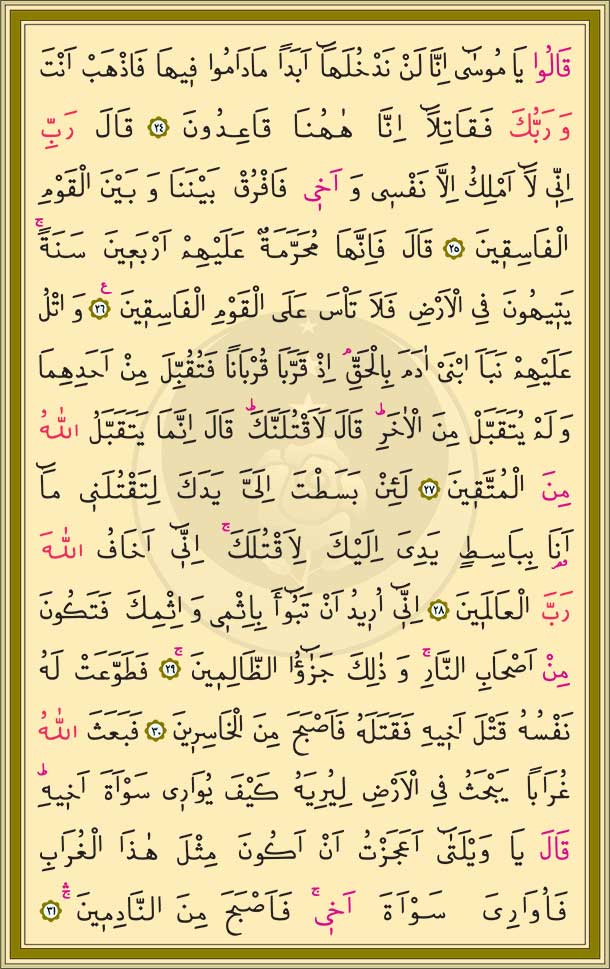 قَالُوا يَا مُوسٰٓى اِنَّا لَنْ نَدْخُلَهَٓا اَبَدًا مَادَامُوا ف۪يهَا فَاذْهَبْ اَنْتَ
وَ رَبُّكَ فَقَاتِلَٓا اِنَّا هٰهُنَا قَاعِدُونَ ﴿٢٤﴾ قَالَ رَبِّ
اِنّ۪ي لَٓا اَمْلِكُ اِلَّا نَفْس۪ي وَ اَخ۪ي فَافْرُقْ بَيْنَنَا وَ بَيْنَ الْقَوْمِ
الْفَاسِق۪ينَ ﴿٢٥﴾ قَالَ فَاِنَّهَا مُحَرَّمَةٌ عَلَيْهِمْ اَرْبَع۪ينَ سَنَةًۚ
يَت۪يهُونَ فِي الْاَرْضِ فَلَا تَاْسَ عَلَى الْقَوْمِ الْفَاسِق۪ينَ ﴿٢٦﴾ وَ اتْلُ
عَلَيْهِمْ نَبَاَ ابْنَيْ اٰدَمَ بِالْحَقِّۢ اِذْ قَرَّبَا قُرْبَانًا فَتُقُبِّلَ مِنْ اَحَدِهِمَا
وَ لَمْ يُتَقَبَّلْ مِنَ الْاٰخَرِۜ قَالَ لَاَقْتُلَنَّكَۜ قَالَ اِنَّمَا يَتَقَبَّلُ اللّٰهُ
مِنَ الْمُتَّق۪ينَ ﴿٢٧﴾ لَئِنْ بَسَطْتَ اِلَيَّ يَدَكَ لِتَقْتُلَن۪ي مَٓا
اَنَا۬ بِبَاسِطٍ يَدِيَ اِلَيْكَ لِاَقْتُلَكَۚ اِنّ۪ٓي اَخَافُ اللّٰهَ
رَبَّ الْعَالَم۪ينَ ﴿٢٨﴾ اِنّ۪ٓي اُر۪يدُ اَنْ تَبُٓوأَ بِاِثْم۪ي وَ اِثْمِكَ فَتَكُونَ
مِنْ اَصْحَابِ النَّارِۚ وَ ذٰلِكَ جَزٰٓؤُا الظَّالِم۪ينَۚ ﴿٢٩﴾ فَطَوَّعَتْ لَهُ
نَفْسُهُ قَتْلَ اَخ۪يهِ فَقَتَلَهُ فَاَصْبَحَ مِنَ الْخَاسِر۪ينَ ﴿٣٠﴾ فَبَعَثَ اللّٰهُ
غُرَابًا يَبْحَثُ فِي الْاَرْضِ لِيُرِيَهُ كَيْفَ يُوَار۪ي سَوْاَةَ اَخ۪يهِۜ
قَالَ يَا وَيْلَتٰٓى اَعَجَزْتُ اَنْ اَكُونَ مِثْلَ هٰذَا الْغُرَابِ
فَاُوَارِيَ سَوْاَةَ اَخ۪يۚ فَاَصْبَحَ مِنَ النَّادِم۪ينَۚۛ ﴿٣١﴾